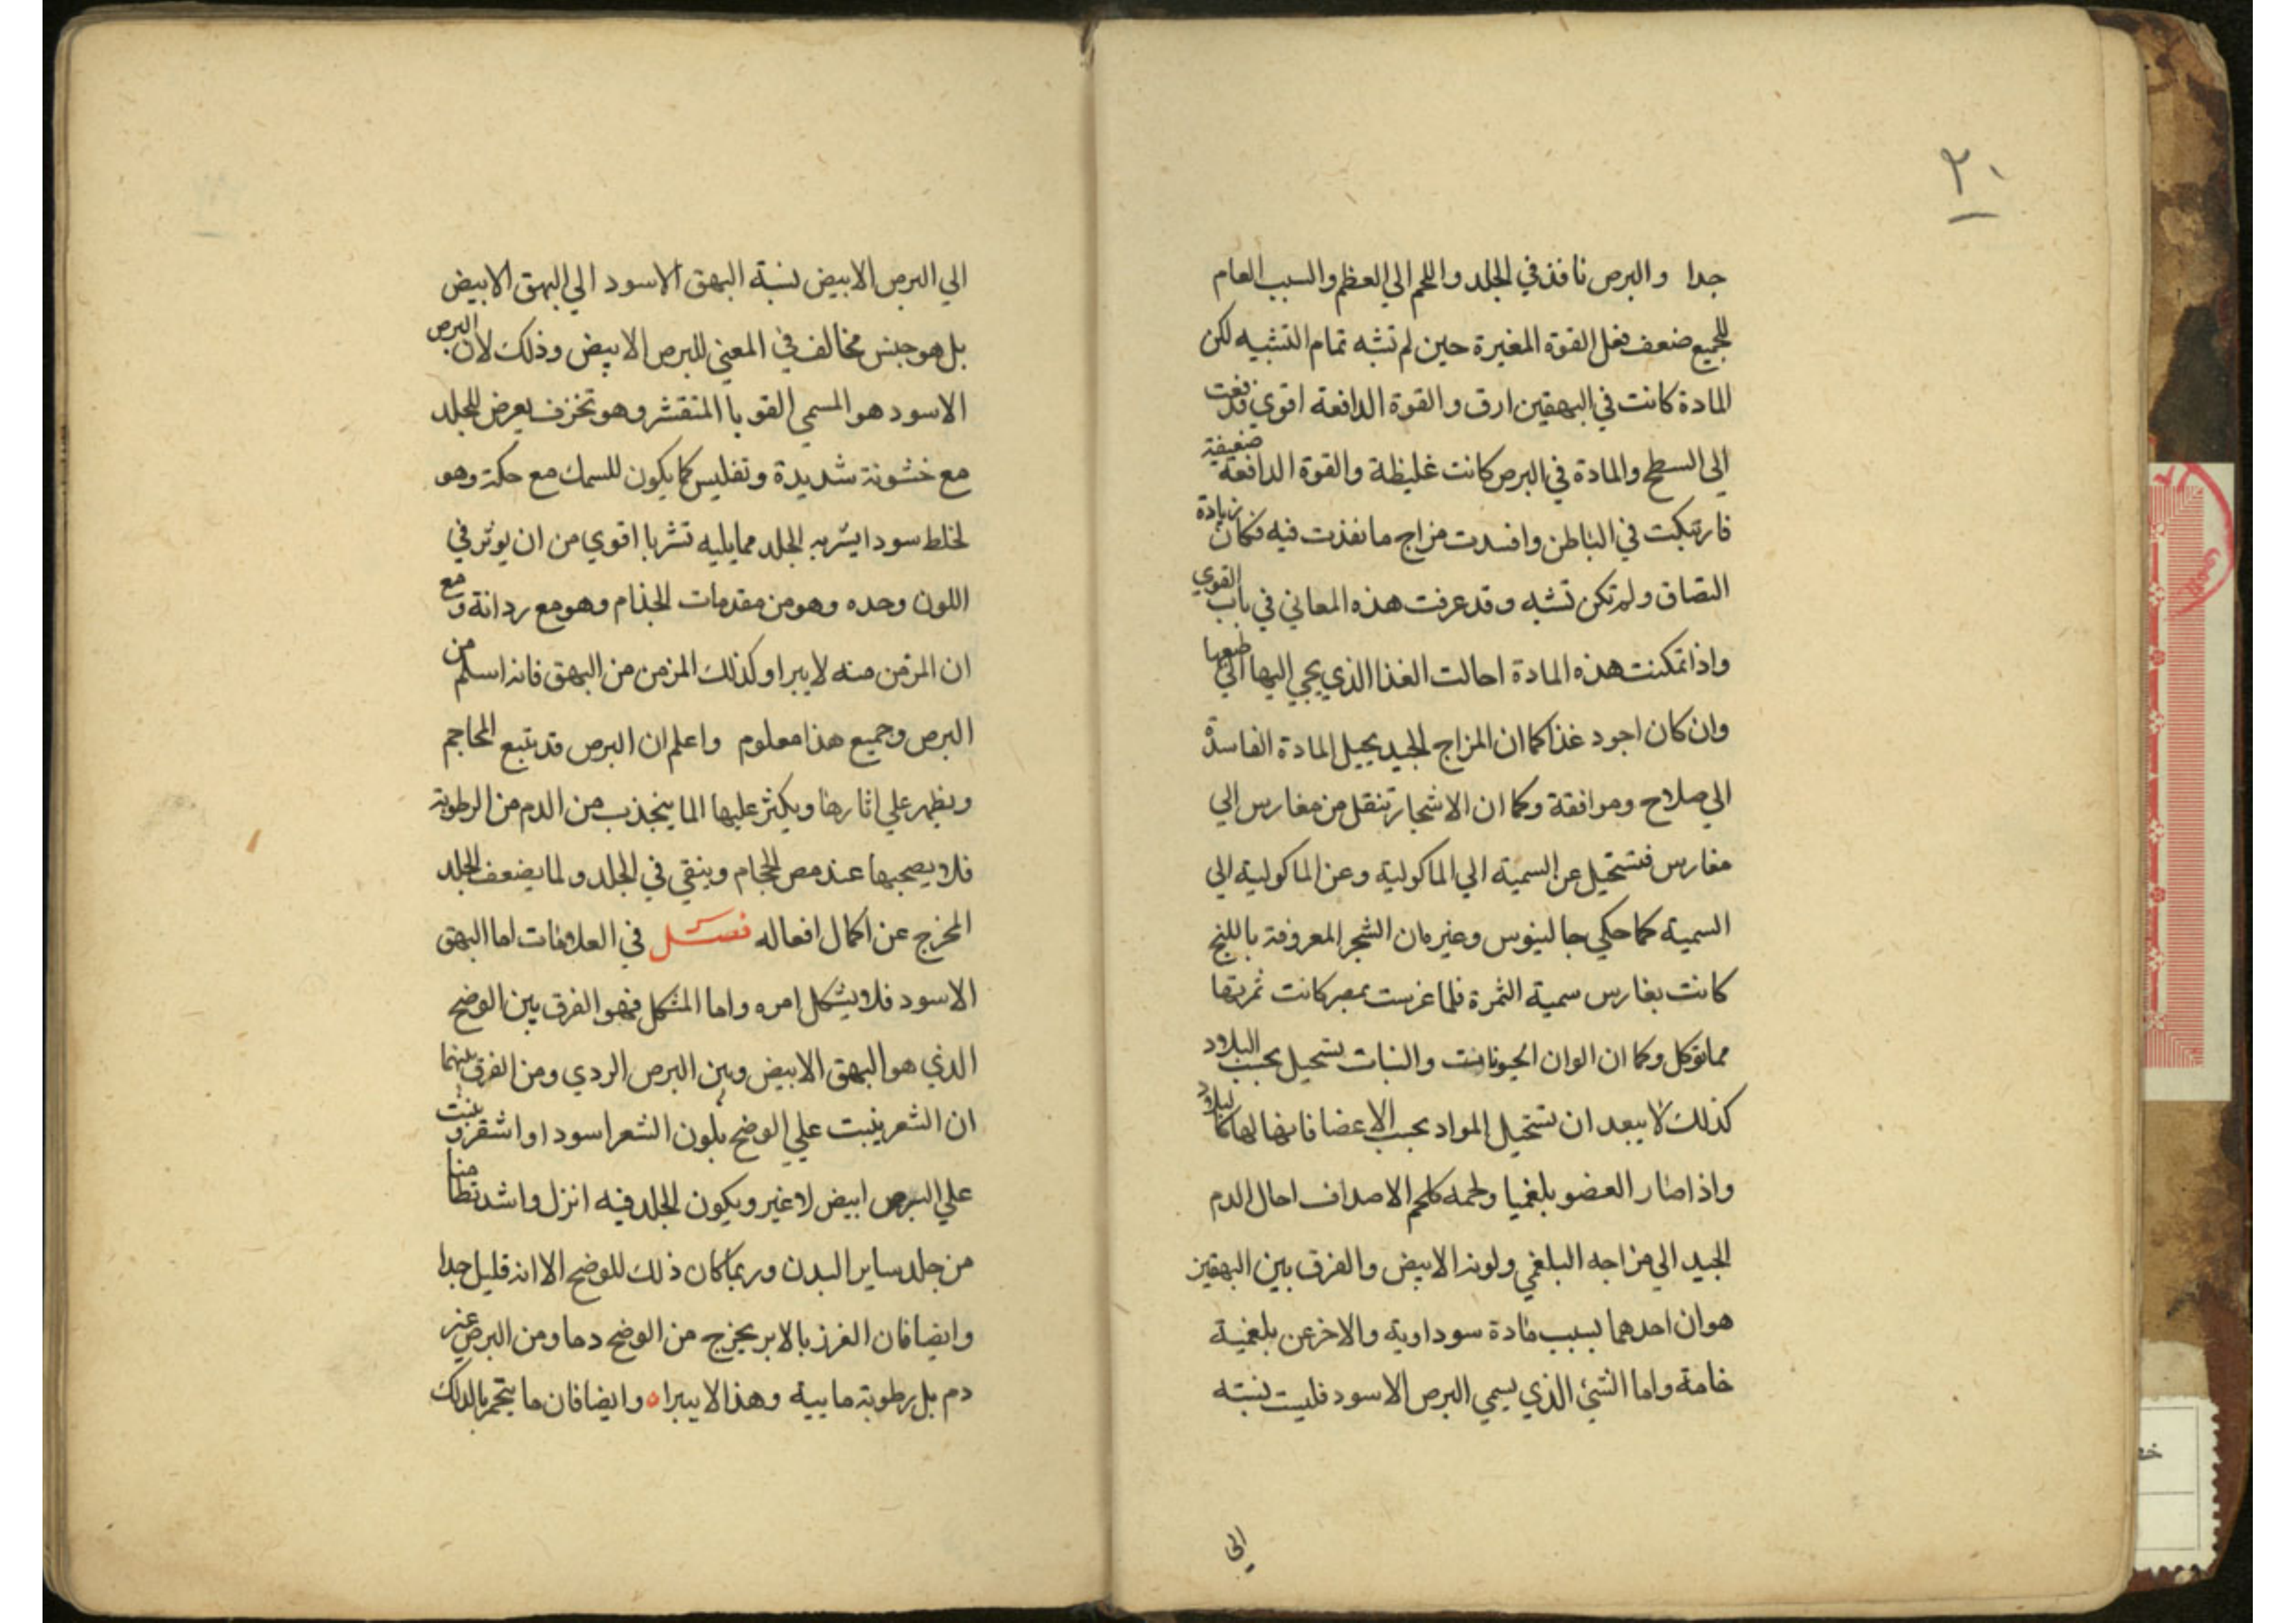 ٢٠
جدا والبرص نافذ في الجلد واللحم الي العظم والسبب العام
للجميع ضعف فعل القوة المغيرة حين لم تشبه تمام التشبيه لكن
المادة كانت في البهقين ارق والقوة الدافعة اقوي فدفعت
الي السطح والمادة في البرص كانت غليظة والقوة الدافعة ضعيفة
فارتبكت في الباطن وافسدت مزاج ما نفذت فيه فكان زيادة
التصاق ولم تكن تشبه وقد عرفت هذه المعاني في باب القوي
واذا تمكنت هذه المادة احالت الغذا الذي يجي اليها الي طبعها
وان كان اجود غذا كما ان المزاج الجيد يحيل المادة الفاسدة
الي صلاح وموافقة وكما ان الاشجار تنقل من مغارس الي
مغارس فتستحيل عن السمية الي الماكولية وعن الماكولية الي
السمية كما حكي جالينوس وغيره ان الشجر المعروفة باللبخ
كانت بفارس سمية الثمرة فلما غرست بمصر كانت ثمرتها
مما توكل وكما ان الوان الحيونات والنبات تستحيل بحسب البلاد
كذلك لا يبعد ان تستحيل المواد بحسب الاعضا فانها لها كالبلاد
واذا صار العضو بلغميا ولحمه كلحم الاصداف احال الدم
الجيد الي مزاجه البلغمي ولونه الابيض والفرق بين البهقين
هو ان احدهما بسبب مادة سوداوية والاخر عن بلغمية
خامة واما الشئ الذي يسمي البرص الاسود فليست نسبته
الي
الي البرص الابيض نسبة البهق الاسود الي البهق الابيض
بل هو جنس مخالف في المعني للبرص الابيض وذلك لان البرص
الاسود هو المسمي القوبا المتقشر وهو تخزف يعرض للجلد
مع خشونة شديدة وتفليس كما يكون للسمك مع حكة وهو
لخلط سودا يشربه الجلد مما يليه تشربا اقوي من ان يوثر في
اللون وحده وهو من مقدمات الجذام وهو مع رداته ومع
ان المزمن منه لا يبرا وكذلك المزمن من البهق فانه اسلم من
البرص وجميع هذا معلوم واعلم ان البرص قد يتبع المحاجم
ويظهر علي اثارها ويكثر عليها الما ينجذب من الدم من الرطوبة
فلا يصحبها عند مص الحجام ويبقي في الجلد ولما يضعف الجلد
المخرج عن اكمال افعاله فصل في العلامات اما البهق
الاسود فلا يشكل امره واما المشكل فهو الفرق بين الوضح
الذي هو البهق الابيض وبين البرص الردي ومن الفرق بينهما
ان الشعر ينبت علي الوضح بلون الشعر اسود او اشقر وينبت
علي البرص ابيض لا غير ويكون الجلد فيه انزل واشد تطامنا
من جلد ساير البدن وربما كان ذلك للوضح الا انه قليل جدا
وايضا فان الغرز بالابر يخرج من الوضح دما ومن البرص غير
دم بل رطوبة مايية وهذا لا يبرا ه وايضا فان ما يتحمر بالدلك